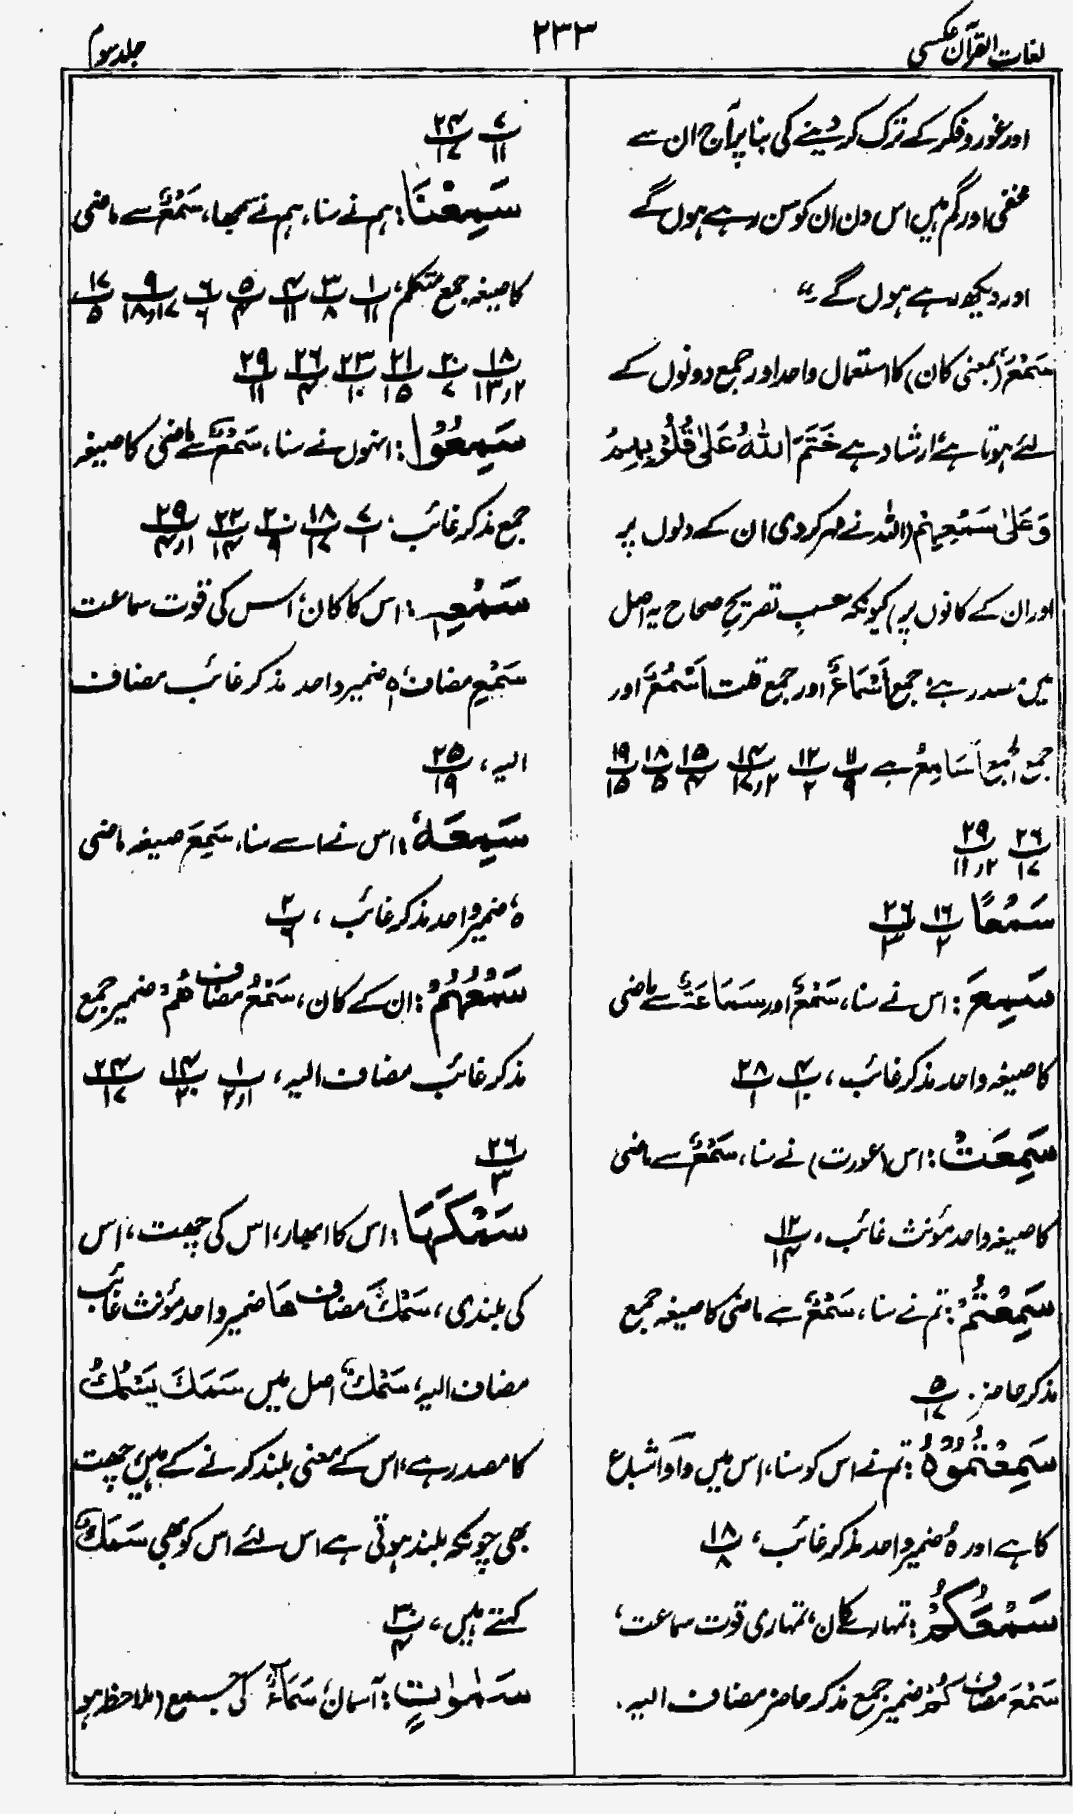 لغات القرآن عکسی
۲۳۳
جلد سوم
اور غور و فکر کے ترک کر دینے کی بنا پر آج ان سے
مخفی اور گم ہیں اس دن ان کو سن رہے ہوں گے
اور دیکھ رہے ہوں گے ۔"
سَمْعَ (بمعنی کان) کا استعمال واحد اور جمع دونوں کے
لئے ہوتا ہے ارشاد ہے خَتَمَ اللّٰہُ عَلیٰ قُلُوْبِہِمْ
وَعَلیٰ سَمْعِہِمْ (اللہ نے مہر کر دی ان کے دلوں پر
اور ان کے کانوں پر) کیونکہ حسبِ تصریح صحاح یہ اصل
میں مصدر ہے جمع اَسْمَاعٌ اور جمع قلت اَسْمُعٌ اور
جمع الجمع اَسَامِعُ ہے ۱۱/۹ ۱۲/۲ ۱۴/۲ر۱۷ ۱۵/۴ ۱۸/۵ ۱۹/۱۵
۲۶/۱۷ ۲۹/۲ر۱۱
سَمْعًا ۱۶/۲ ۲۶/۳
سَمِعَ : اس نے سنا، سَمْعٌ اور سَمَاعَۃٌ سے ماضی
کا صیغہ واحد مذکر غائب، ۴/۱۰ ۲۸/۱
سَمِعَتْ : اس (عورت) نے سنا، سَمْعٌ سے ماضی
کا صیغہ واحد مؤنث غائب، ۱۲/۱۴
سَمِعْتُمْ : تم نے سنا، سَمْعٌ سے ماضی کا صیغہ جمع
مذکر حاضر. ۵/۱۷
سَمِعْتُمُوْہُ : تم نے اس کو سنا، اس میں واؤ اشباع
کا ہے اور ہُ ضمیر واحد مذکر غائب، ۱۸/۸
سَمْعَکُمْ : تمہارے کان، تمہاری قوت سماعت،
سَمْعَ مضاف کُمْ ضمیر جمع مذکر حاضر مضاف الیہ.
۷/۱۱ ۲۴/۱۷
سَمِعْنَا : ہم نے سنا، ہم نے سمجھا، سَمْعٌ سے ماضی
کا صیغہ جمع متکلم، ۱/۱۱ ۳/۸ ۴/۱۱ ۵/۴ ۶/۶ ۹/۱۷ر۱۸ ۱۷/۵
۱۸/۲ر۱۳ ۲۰/۷ ۲۱/۱۵ ۲۳/۱۰ ۲۶/۴ ۲۹/۱۱
سَمِعُوْا : انہوں نے سنا، سَمْعٌ سے ماضی کا صیغہ
جمع مذکر غائب، ۷/۱ ۱۸/۱۷ ۲۰/۹ ۲۲/۱۴ ۲۹/۱ر۴
سَمْعِہٖ : اس کا کان، اس کی قوت سماعت
سَمْعِ مضاف ہٖ ضمیر واحد مذکر غائب مضاف
الیہ، ۲۵/۱۹
سَمِعَہٗ : اس نے اسے سنا، سَمِعَ صیغہ ماضی
ہٗ ضمیر واحد مذکر غائب، ۲/۶
سَمْعُہُمْ : ان کے کان، سَمْعُ مضاف ھُمْ ضمیر جمع
مذکر غائب مضاف الیہ، ۱/۱ر۲ ۱۴/۲۰ ۲۴/۱۷
۲۶/۳
سَمْکَہَا : اس کا ابھار، اس کی چھت، اس
کی بلندی، سَمْکَ مضاف ھَا ضمیر واحد مؤنث غائب
مضاف الیہ، سَمْکٌ اصل میں سَمَکَ یَسْمُکُ
کا مصدر ہے، اس کے معنی بلند کرنے کے ہیں، چھت
بھی چونکہ بلند ہوتی ہے اس لئے اس کو بھی سَمَکٌ
کہتے ہیں، ۳۰/۴
سَمٰوٰاتٍ : آسمان، سَمَاءٌ کی جمع (ملاحظہ ہو